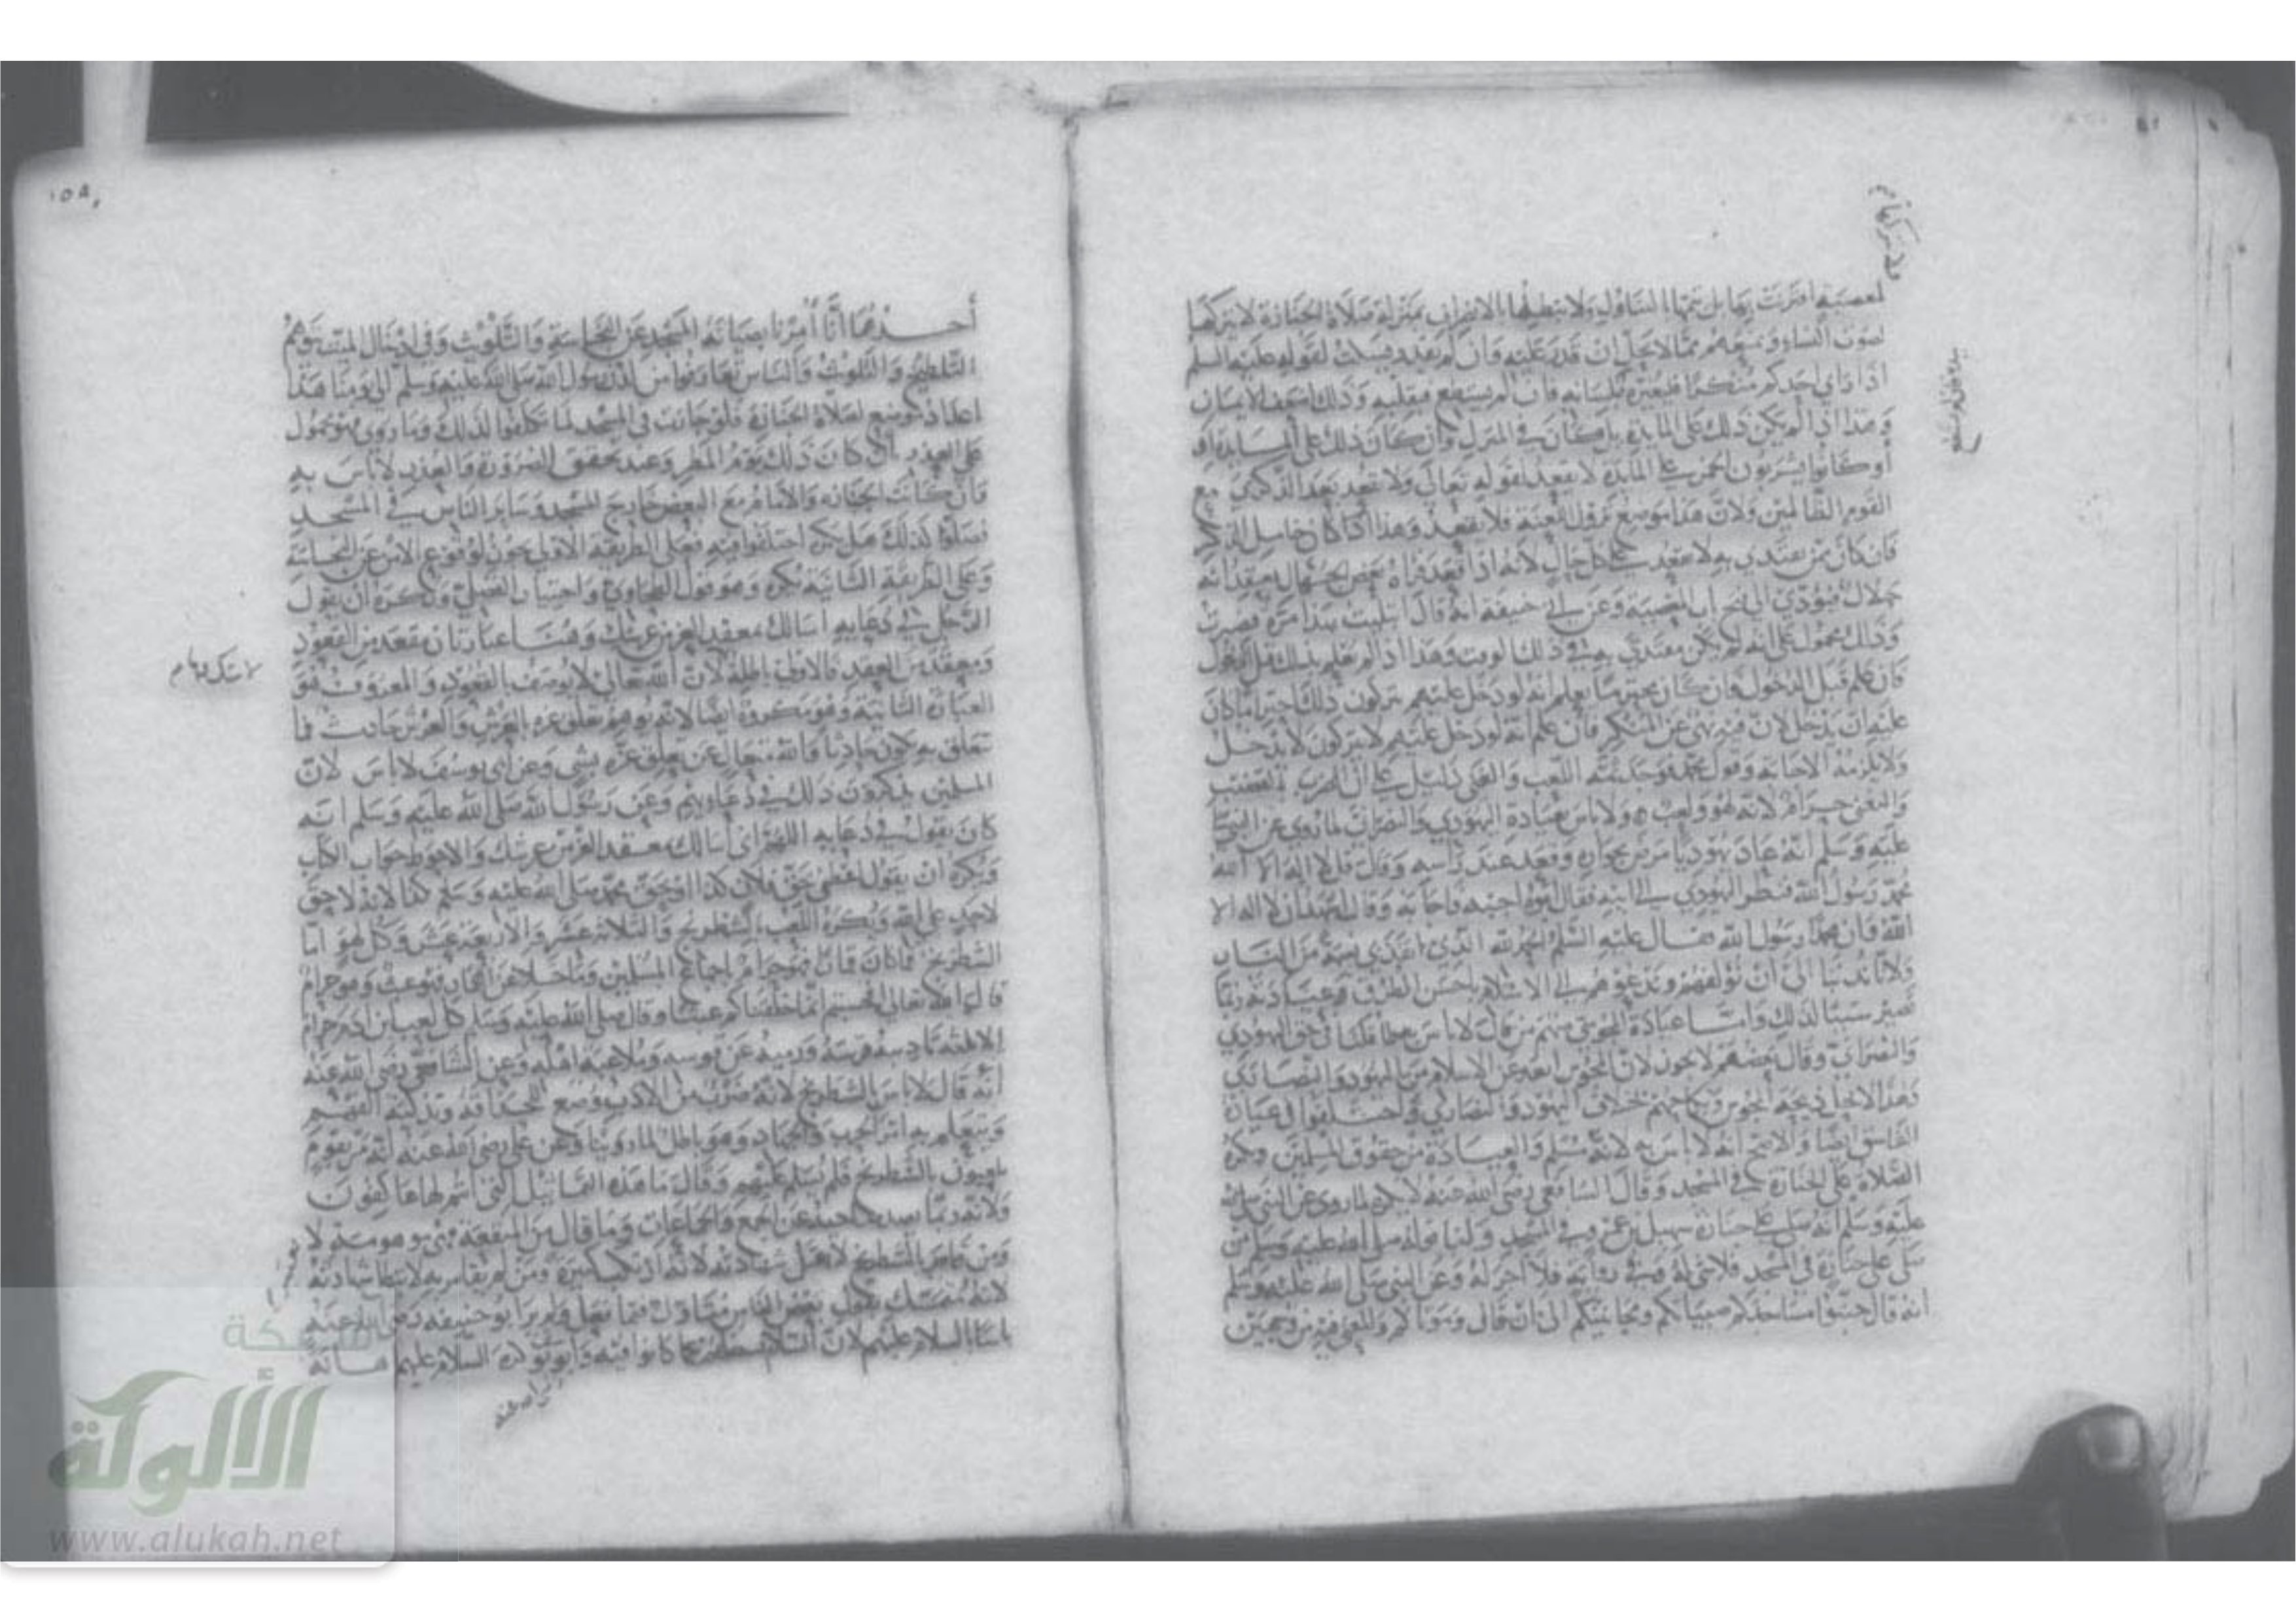 لمعصية اقترنت بها بل يتمها المتناول ولا يبطلها الاقتران بمنزلة صلاة الجنازة لا يتركها
لصوت النساء و يمنعهم مما لا يحل ان قدر عليه وان لم يقدر يسكت لقوله عليه السلم
اذا راى احدكم منكرا فليغيره بلسانه فان لم يستطع فبقلبه وذلك اضعف الايمان
وهذا اذا لم يكن ذلك على المايدة بل كان في المنزل وان كان ذلك على المايدة
أو كانوا يشربون الخمر على المايدة لا يقعد لقوله تعالى ولا تقعد بعد الذكرى مع
القوم الظالمين ولان هذا موضع نزول اللعنة فلا يقعد وهذا اذا كان خامل الذكر
فان كان ممن يقتدي به لا يقعد على كل حال لانه اذا قعد يراه بعض الجهال يعتقد انه
حلال فيؤدي الى فتح باب المعصية وعن ابي حنيفة انه قال ابتليت بهذا مرة فصبرت
وذلك محمول على انه لم يكن مقتدي به في ذلك الوقت وهذا اذا لم يعلم بذلك قبل الدخول
فان علم قبل الدخول فان كان محترما يعلم انه لو دخل عليهم يتركون ذلك احتراما كان
عليه ان يدخل لان فيه نهي عن المنكر فان علم انه لو دخل عليهم لا يتركون لا يدخل
ولا يلزمه الاجابة وقول محمد فوجد ثمه اللعب والغنى دليل على ان الضرب بالقضيب
والتغني حرام لانه لهو ولعب ولا باس بعيادة اليهودي والنصراني لما روي عن النبي
عليه وسلم انه عاد يهوديا مرض بجواره وقعد عند راسه وقال قل لا اله الا الله
محمد رسول الله فنظر اليهودي الى ابيه فقال ابوه اجبه فاجابه وقال اشهد ان لا اله الا
الله وان محمدا رسول الله فقال عليه السلم الحمد لله الذي انقذ بي نسمة من النار
ولانا ندبنا الى ان نؤلفهم وندعوهم الى الاسلام باحسن الطرق وعيادته ربما
تصير سببا لذلك واما عيادة المجوسي منهم من قال لا باس بها لما قلنا في حق اليهودي
والنصراني وقال بعضهم لا يجوز لان المجوس ابعد عن الاسلام من اليهود والنصارى
ولهذا لا يحل ذبيحة المجوس ونكاحهم بخلاف اليهود والنصارى واختلفوا في عيادة
الفاسق ايضا والاصح انه لا باس به لانه مسلم والعيادة من حقوق المسلمين ويكره
الصلاة على الجنازة في المسجد وقال الشافعي رضى الله عنه لا يكره لما روي عن النبي صلى الله
عليه وسلم انه صلى على جنازة سهيل بن عمرو في المسجد ولنا قوله صلى الله عليه وسلم من
صلى على جنازة في المسجد فلا شى له وفي رواية فلا اجر له وعن النبي صلى الله عليه وسلم
انه قال جنبوا مساجدكم صبيانكم ومجانينكم الى ان قال وموتاكم والمعنى فيه من وجهين
١٥٨
أحدهما أنا أمرنا بصيانة المسجد عن النجاسة والتلويث وفي ادخال الميت توهم
التلطيخ والتلويث والناس تعارفوا من لدن رسول الله صلى الله عليه وسلم الى يومنا هذا
اعداد موضع لصلاة الجنازة فلو جازت في المسجد لما تكلفوا لذلك وما روي فهو محمول
على العذر بان كان ذلك يوم المطر وعند تحقق الضرورة والعذر لا باس به
فان كانت الجنازة والامام مع البعض خارج المسجد وسائر الناس في المسجد
فصلوا كذلك هل يكره اختلفوا فيه فعلى الطريقة الاولى يجوز لوقوع الامن عن النجاسة
وعلى الطريقة الثانية يكره وهو قول الطحاوي واختيار الفضلي ويكره ان يقول
الرجل في دعايه اسالك بمعقد العز من عرشك وهنا عبارتان مقعد من القعود
ومعقد من العقد فالاولى باطلة لان الله تعالى لا يوصف بالقعود والمعروف هو
العبارة الثانية وهو مكروه ايضا لانه يوهم تعلق عزه بالعرش والعرش حادث فما
تعلق به يكون حادثا والله متعال عن تعلق عزه بشي وعن ابي يوسف لا باس لان
المسلمين يذكرون ذلك في دعاويهم وعن رسول الله صلى الله عليه وسلم انه
كان يقول في دعايه اللهم اني أسالك بمعقد العز من عرشك والاحوط جواب الكتاب
ويكره ان يقول اعطني بحق فلان كذا او بحق محمد صلى الله عليه وسلم كذا لانه لا حق
لاحد على الله ويكره اللعب بالشطرنج والثلاثة عشر والاربعة عشر وكل لهو اما
الشطرنج فما كان قمارا فهو حرام باجماع المسلمين وما خلا عن القمار فهو عبث وهو حرام
قال الله تعالى افحسبتم انما خلقناكم عبثا وقال صلى الله عليه وسلم كل لعب ابن ادم حرام
الا ثلثة تاديبه فرسه ورميه عن قوسه وملاعبته اهله وعن الشافعي رضى الله عنه
انه قال لا باس بالشطرنج لانه ضرب من الادب وتذكية الفهم
ويتعلم به امر الحرب والجهاد وهو باطل لما روينا وعن علي رضى الله عنه انه مر بقوم
يلعبون بالشطرنج فلم يسلم عليهم وقال ما هذه التماثيل التي انتم لها عاكفون
ولانه ربما يصد صاحبه عن الجمع والجماعات وما قال من المنفعة فهي موهومة لا
ومن قامر بالشطرنج لا تقبل شهادته لانه ارتكب كبيرة ومن لم يقامر به لا تسقط شهادته
لانه يتمسك بقول بعض الناس متاول فيما فعل ولم ير ابو حنيفة رضى الله عنه
باسا بالسلام عليهم لان السلام يشغلهم عما كانوا فيه وابو يوسف كره السلام عليهم اهانة
شبكة
الألوكة
www.alukah.net